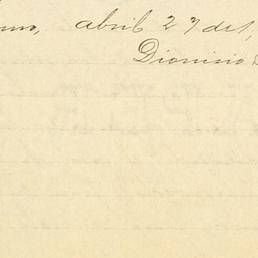 abril 27 de 1,
Dionisio